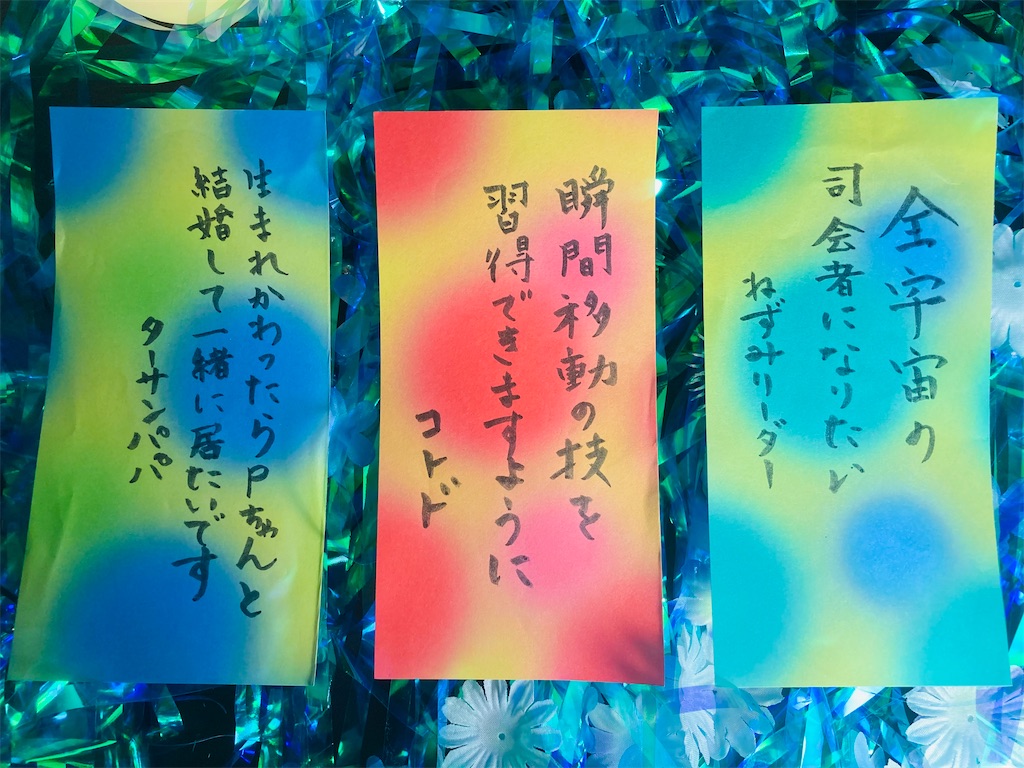 全宇宙の
司会者になりたい
ねずみリーダー
瞬間移動の技を
習得できますように
コトド
生まれかわったらPちゃんと
結婚して一緒に居たいです
ターサンパパ